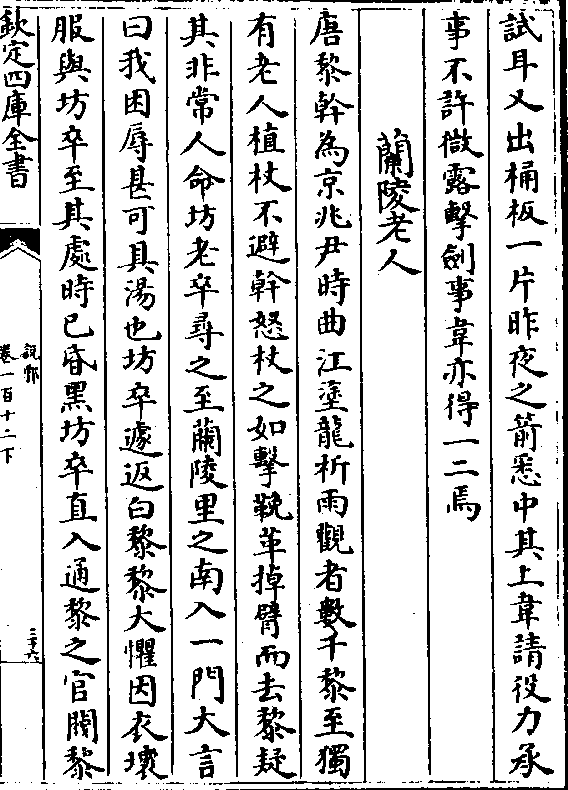 試耳又出桶板一片昨夜之箭悉中其上韋請役力承
事不許微露擊劍事韋亦得一二焉
蘭陵老人
唐黎幹為京兆尹時曲江塗龍祈雨觀者數千黎至獨
有老人植杖不避幹怒杖之如擊鞔革掉臂而去黎疑
其非常人命坊老卒尋之至蘭陵里之南入一門大言
曰我困辱甚可具湯也坊卒遽返白黎黎大懼因衣壞
服與坊卒至其處時已昏黑坊卒直入通黎之官閥黎
欽定四庫全書
說郛
卷一百十二下
三十六